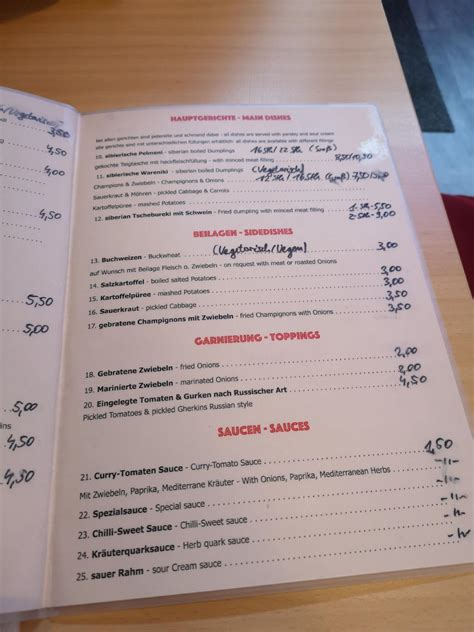 3,50
4,50
4,50
5,50
5,00
5,00
4,50
4,50
HAUPTGERICHTE - MAIN DISHES
bei allen gerichten sind petersilie und schmand dabei - all dishes are served with parsley and sour cream
alle gerichte sind mit unterschiedlichen füllungen erhältlich
10. sibierische Pelmeni - siberian boiled Dumplings 16 Stk/22 Stk. (groß)
gekochte Teigtasche mit Hackfleischfüllung - with minced meat filling 8,50/10,50
11. sibierische Wareniki - siberian boiled Dumplings (Vegetarisch)
Champignons & Zwiebeln - Champignons & Onions 12 Stk/16 Stk. (groß)
Sauerkraut & Möhren - pickled Cabbage & Carrots
Kartoffelpüree - mashed Potatoes
12. siberian Tschebureki mit Schwein - Fried dumpling with minced meat filling 1 Stk - 5,50
2 Stk - 9,00
BEILAGEN - SIDEDISHES
13. Buchweizen - Buckwheat (Vegetarisch/Vegan) 3,00
auf Wunsch mit Beilage Fleisch o. Zwiebeln - on request with meat or roasted Onions
14. Salzkartoffel - boiled salted Potatoes 3,00
15. Kartoffelpüree - meshed Potatoes 3,50
16. Sauerkraut - pickled Cabbage 3,00
17. gebratene Champignons mit Zwiebeln - fried Champignons with Onions 3,50
GARNIERUNG - TOPPINGS
18. Gebratene Zwiebeln - fried Onions 2,00
19. Marinierte Zwiebeln - marinated Onions 2,00
20. Eingelegte Tomaten & Gurken nach Russischer Art 4,50
Pickled Tomatoes & pickled Gherkins Russian style
SAUCEN - SAUCES
21. Curry-Tomaten Sauce - Curry-Tomato Sauce 1,50
Mit Zwiebeln, Paprika, Mediterrane Kräuter - With Onions, Paprika, Mediterranean Herbs
22. Spezialsauce - Special sauce -"-
23. Chilli-Sweet Sauce - Chilli-Sweet sauce -"-
24. Kräuterquarksauce - Herb quark sauce -"-
25. sauer Rahm - sour Cream sauce -"-